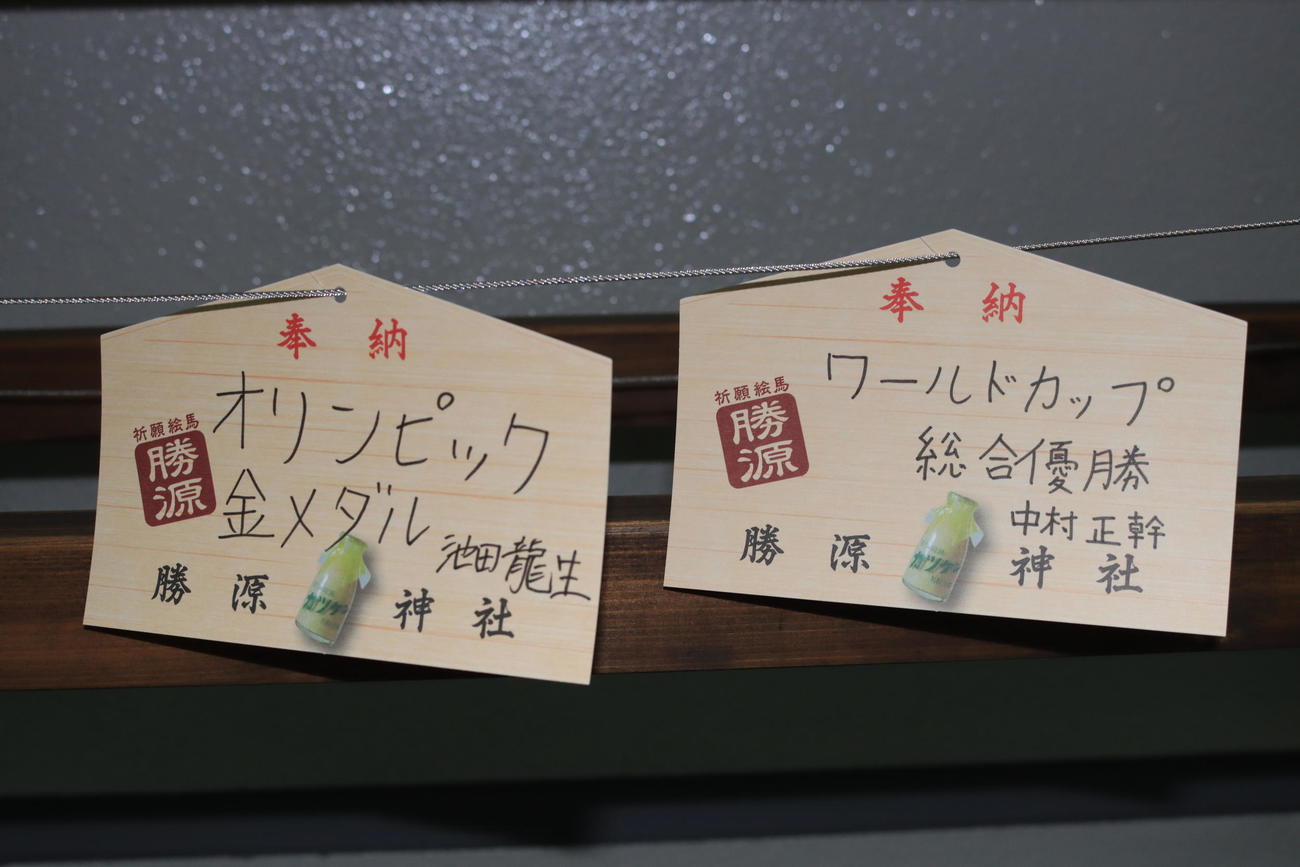 奉納
オリンピック
祈願絵馬
勝源
金メダル
池田龍生
勝源神社
カツゲン
奉納
ワールドカップ
祈願絵馬
勝源
総合優勝
中村正幹
勝源神社
カツゲン